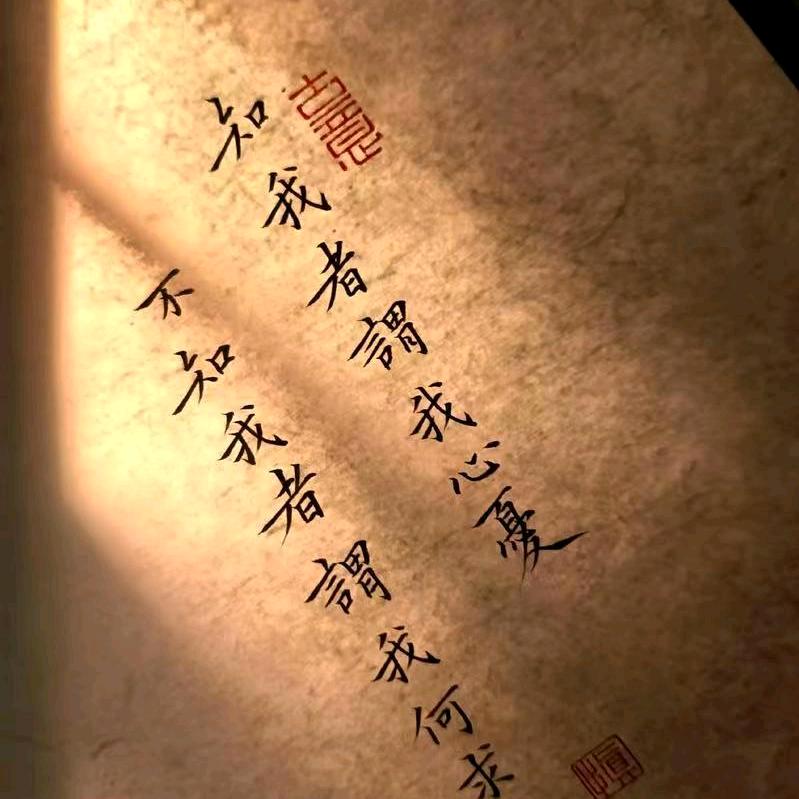 知我者謂我心憂
不知我者謂我何求